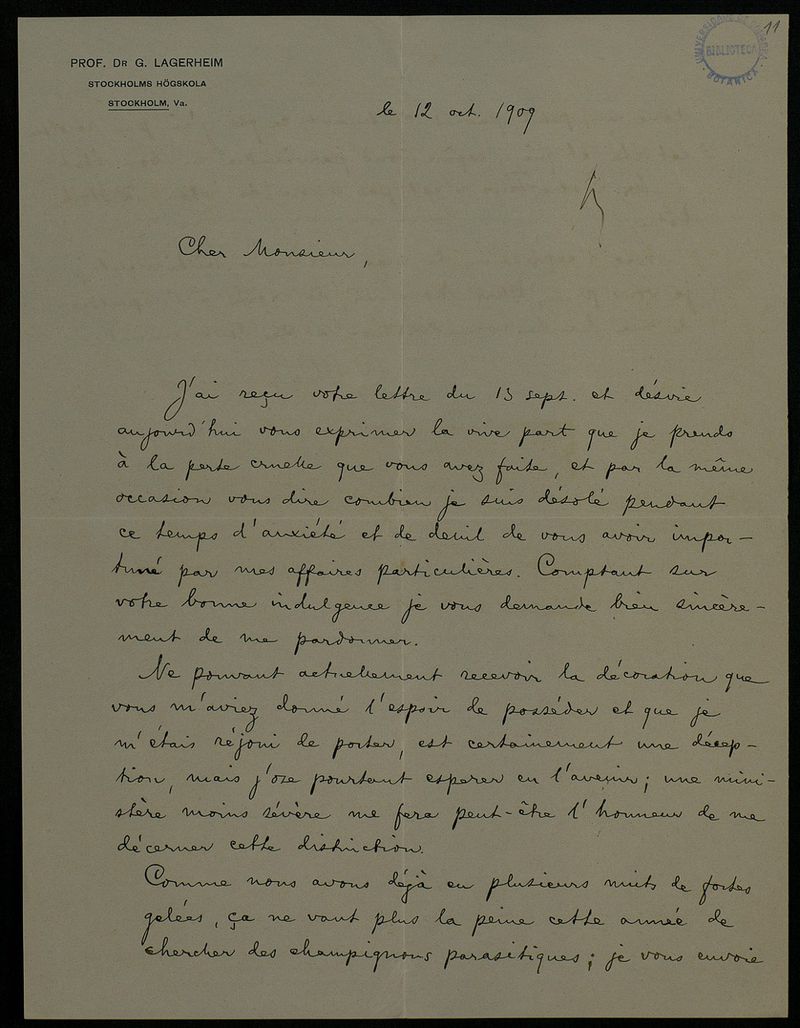 11
UNIVERSIDADE DE COIMBRA
BIBLIOTECA
BOTANICA
PROF. DR G. LAGERHEIM
STOCKHOLMS HÖGSKOLA
STOCKHOLM, Va.
le 12 oct. 1909
Cher Monsieur,
J'ai reçu votre lettre du 13 sept. et désvie
aujourd'hui vous exprimer la vive part que je prends
à la perte cruelle que vous avez faite, et par la même
occasion vous dire combien je suis désolé pendant
ce temps d'anxiété et de deuil de vous avoir impor-
tuné par mes affaires particulières. Comptant sur
votre bonne indulgence je vous demande bien sincère-
ment de me pardonner.
Ne pouvant actuellement recevoir la décoration que
vous m'aviez donné l'espoir de posséder et que je
m'étais réjoui de porter, est certainement une décep-
tion, mais j'ose pourtant esperer en l'avenir; une mini-
stère moins sévère me fera peut-être l'honneur de me
décerner cette distinction.
Comme nous avons déjà eu plusieurs nuits de fortes
gelées, ça ne vaut plus la peine cette année de
chercher des champignons parasitiques; je vous envoie